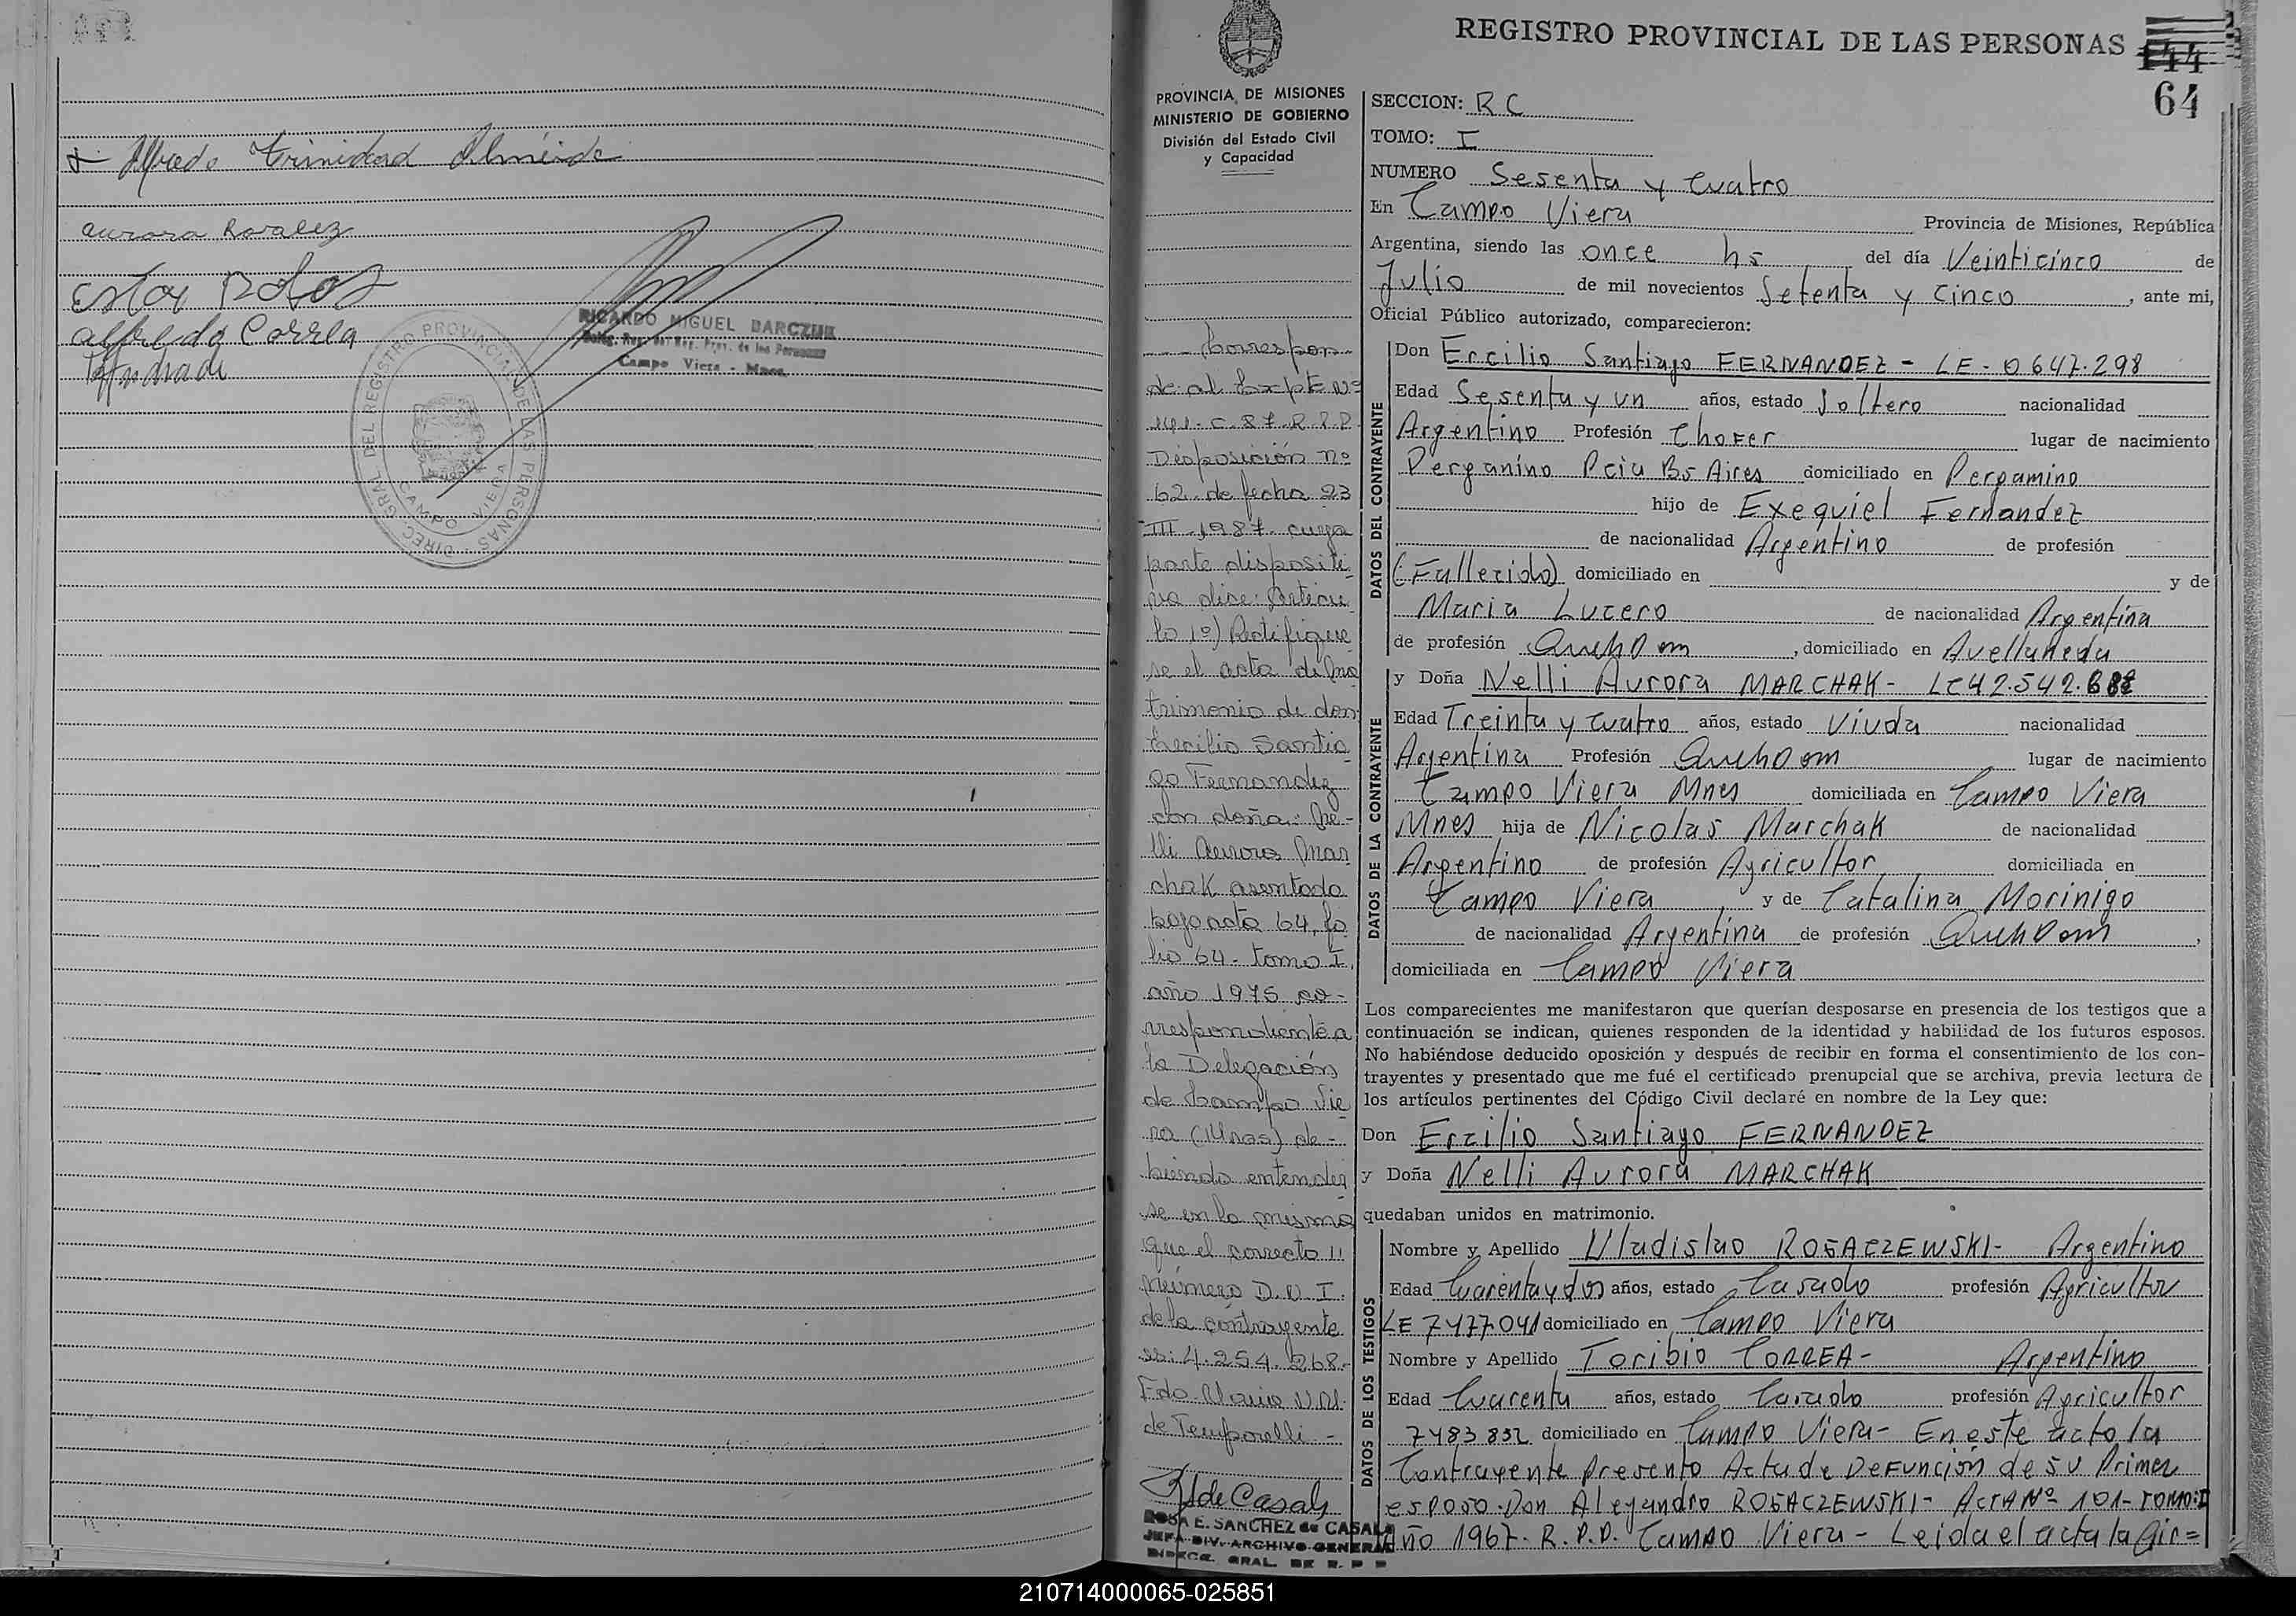 + Alfredo Trinidad Almeida
aurora Rosalez
Alfredo Correa
RICARDO MIGUEL BARCZUK
Campo Viera - Mnes.
DIREC. GRAL. DEL REGISTRO PROVINCIAL DE LAS PERSONAS
CAMPO VIERA
REGISTRO PROVINCIAL DE LAS PERSONAS
144
64
PROVINCIA DE MISIONES
MINISTERIO DE GOBIERNO
División del Estado Civil
y Capacidad
Correspon-
de al Expte Nº
141-C-87-R.P.P.
Disposición nº
62 de fecha 23
III-1987 cuya
parte dispositi-
va dice: Artícu
lo 1º) Rectifique
se el acta de ma
trimonio de don
Ercilio Santia
go Fernandez
con doña: Ne-
lli Aurora Mar
chak asentada
bajo acta 64, fo
lio 64 - tomo I,
año 1975 co-
rrespondiente a
la Delegación
de Campo Vie
ra (Mnes) de-
biendo entender
se en la misma
que el correcto
número D.N.I.
de la contrayente
es: 4.254.268-
Fdo
de Temporelli -
R S de Casals
ROSA E. SANCHEZ de CASALS
JEFA DIV. ARCHIVO GENERAL
DIRECC. GRAL. DE R. P P
SECCION: RC
TOMO: I
NUMERO Sesenta y Cuatro
En Campo Viera Provincia de Misiones, República
Argentina, siendo las once hs del día Veinticinco de
Julio de mil novecientos Setenta y Cinco, ante mi,
Oficial Público autorizado, comparecieron:
DATOS DEL CONTRAYENTE
Don Ercilio Santiago FERNANDEZ - LE - 0647.298
Edad Sesenta y un años, estado Soltero nacionalidad
Argentino Profesión Chofer lugar de nacimiento
Perganino Pcia Bs Aires domiciliado en Pergamino
hijo de Exequiel Fernandez
de nacionalidad Argentino de profesión
(Fallecido) domiciliado en y de
Maria Lucero de nacionalidad Argentina
de profesión QuehDom, domiciliado en Avellaneda
DATOS DE LA CONTRAYENTE
y Doña Nelli Aurora MARCHAK - LC 42.542.68
Edad Treinta y Cuatro años, estado Viuda nacionalidad
Argentina Profesión QuehDom lugar de nacimiento
Campo Viera Mnes domiciliada en Campo Viera
Mnes hija de Nicolas Marchak de nacionalidad
Argentino de profesión Agricultor domiciliada en
Campo Viera, y de Catalina Morinigo
de nacionalidad Argentina de profesión QuehDom,
domiciliada en Campo Viera
Los comparecientes me manifestaron que querían desposarse en presencia de los testigos que a
continuación se indican, quienes responden de la identidad y habilidad de los futuros esposos.
No habiéndose deducido oposición y después de recibir en forma el consentimiento de los con-
trayentes y presentado que me fué el certificado prenupcial que se archiva, previa lectura de
los artículos pertinentes del Código Civil declaré en nombre de la Ley que:
Don Ercilio Santiago FERNANDEZ
y Doña Nelli Aurora MARCHAK
quedaban unidos en matrimonio.
DATOS DE LOS TESTIGOS
Nombre y Apellido Uladislao ROSACZEWSKI - Argentino
Edad Cuarenta y dos años, estado Casado profesión Agricultor
LE 7477041 domiciliado en Campo Viera
Nombre y Apellido Toribio CORREA - Argentino
Edad Cuarenta años, estado Casado profesión Agricultor
7483832 domiciliado en Campo Viera - En este acto la
Contrayente Presento Acta de Defunción de su Primer
esposo Don Alejandro ROSACZEWSKI - Acta Nº 101 - TOMO: I
Año 1967 - R.P.P. Campo Viera - Leida el acta la fir=
210714000065-025851